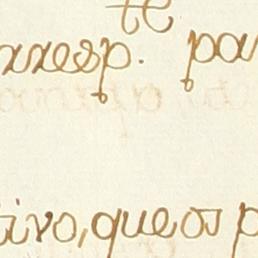 te
xxesp. par
tivo, que os p